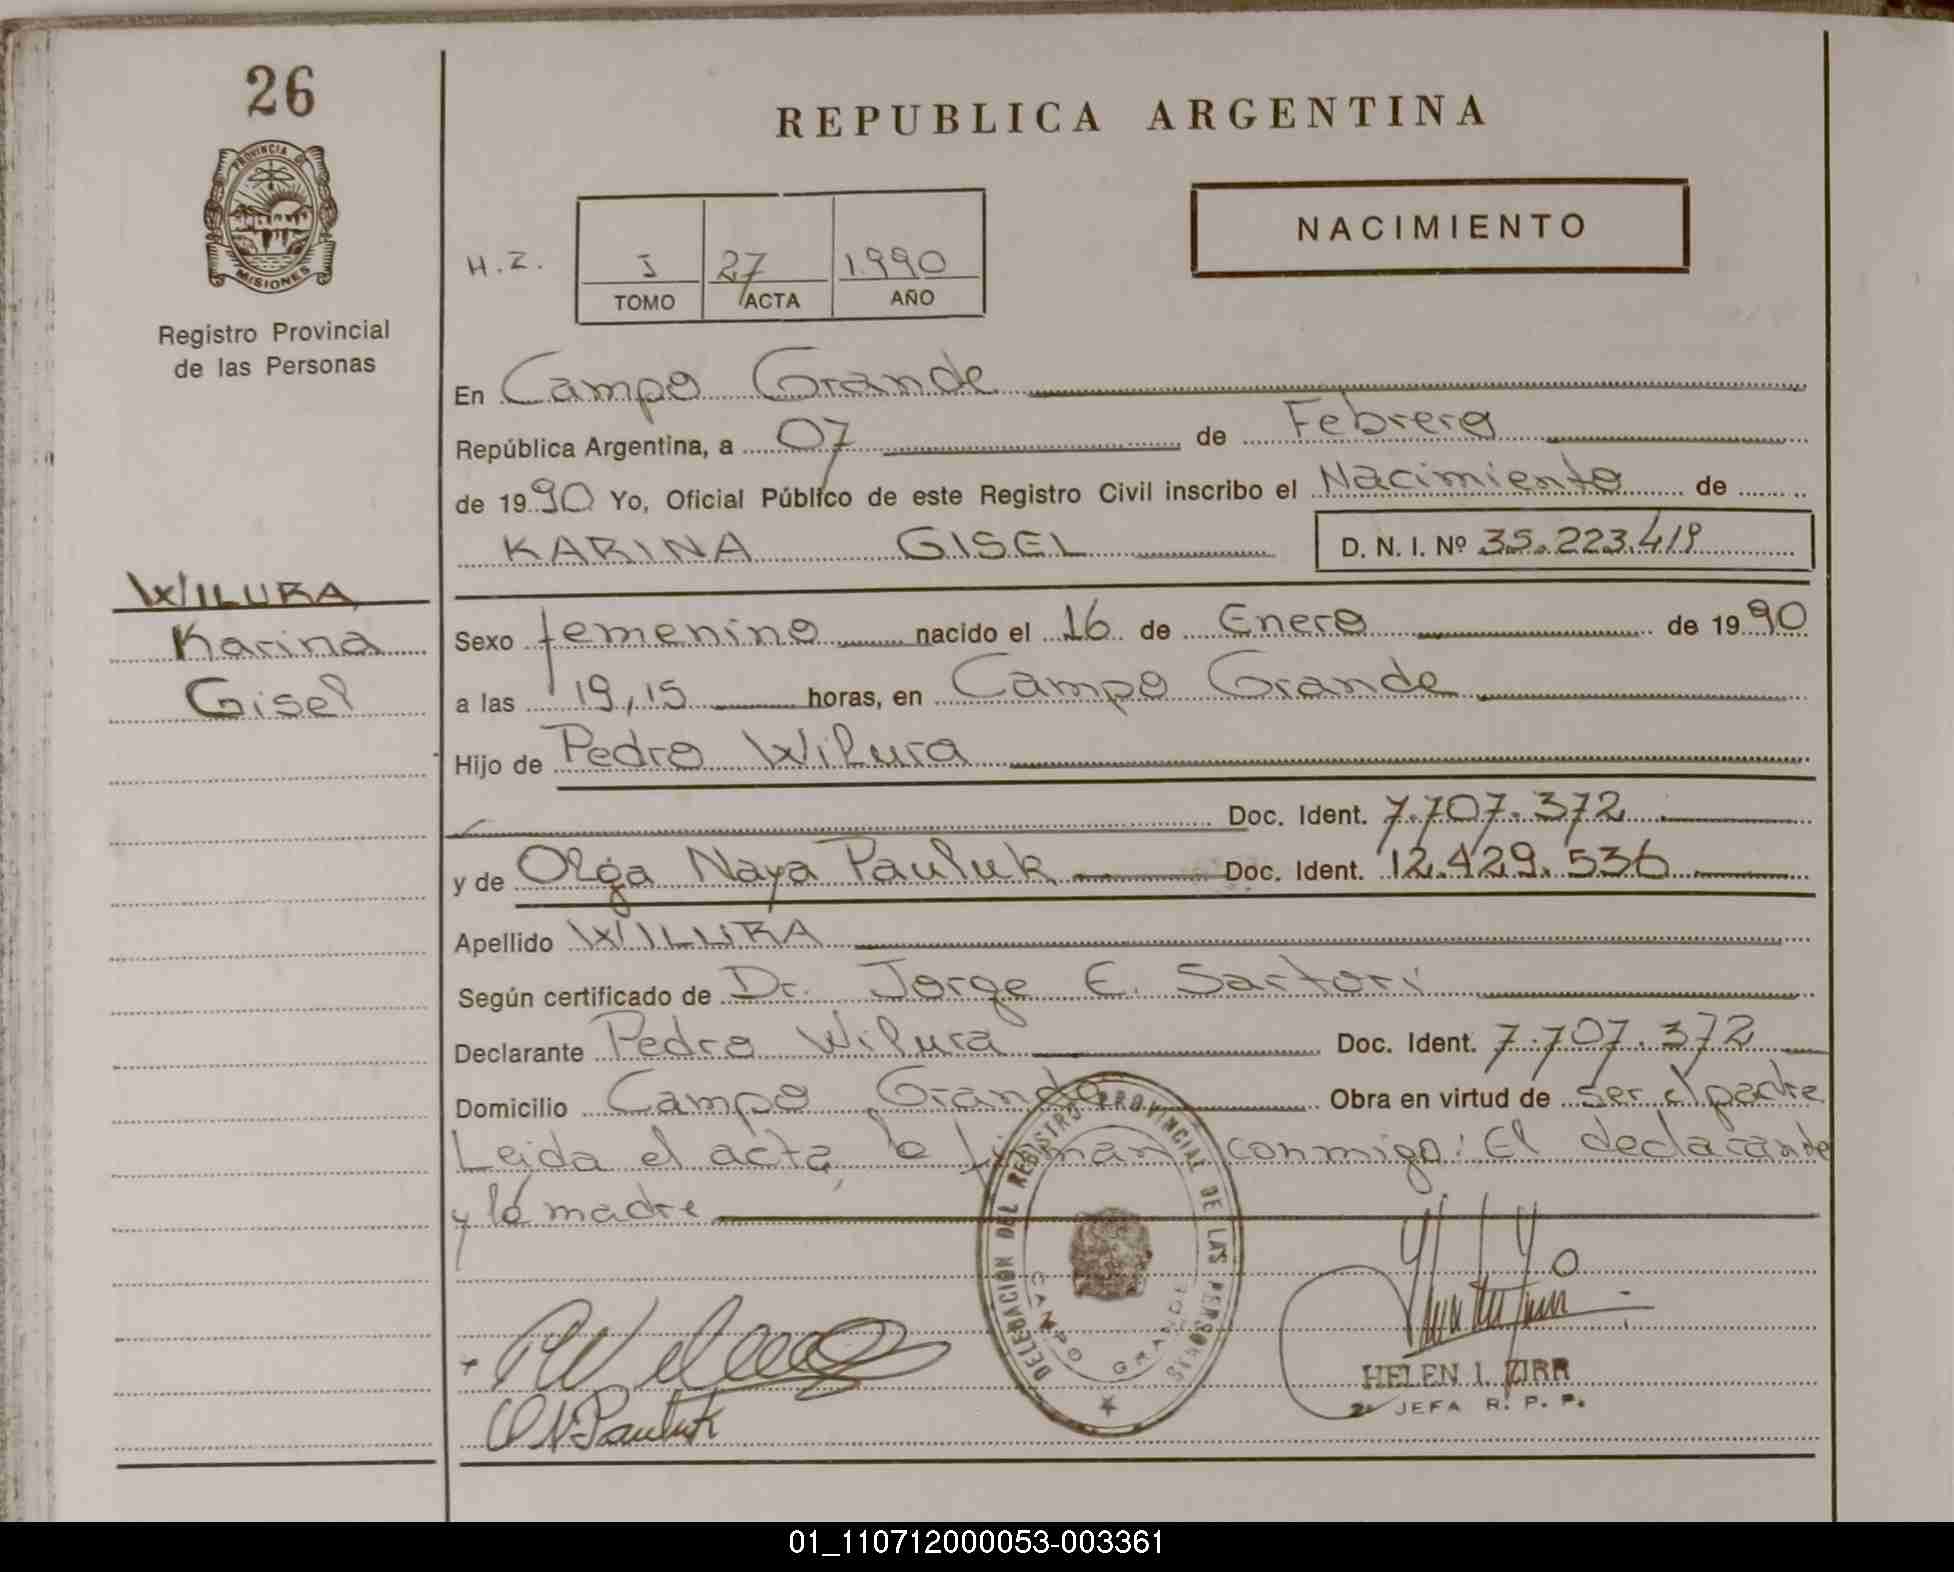 26
PROVINCIA DE
MISIONES
Registro Provincial
de las Personas
REPUBLICA ARGENTINA
NACIMIENTO
H.Z.
27 1990
TOMO ACTA AÑO
En Campo Grande
República Argentina, a 07 de Febrero
de 1990 Yo, Oficial Público de este Registro Civil inscribo el Nacimiento de
KARINA GISEL D. N. I. Nº 35.223.419
WILURA
Karina
Gisel
Sexo femenino nacido el 16 de Enero de 1990
a las 19,15 horas, en Campo Grande
Hijo de Pedro Wilura
Doc. Ident. 7.707.372
y de Olga Naya Pauluk Doc. Ident. 12.429.536
Apellido WILURA
Según certificado de Dr. Jorge E. Sartori
Declarante Pedro Wilura Doc. Ident. 7.707.372
Domicilio Campo Grande Obra en virtud de ser el padre
Leida el acta, la firman conmigo: El declarante
y la madre
DELEGACION DEL REGISTRO PROVINCIAL DE LAS PERSONAS
CAMPO GRANDE
O N Pauluk
HELEN I. ZIRR
2ª JEFA R. P. P.
01_110712000053-003361